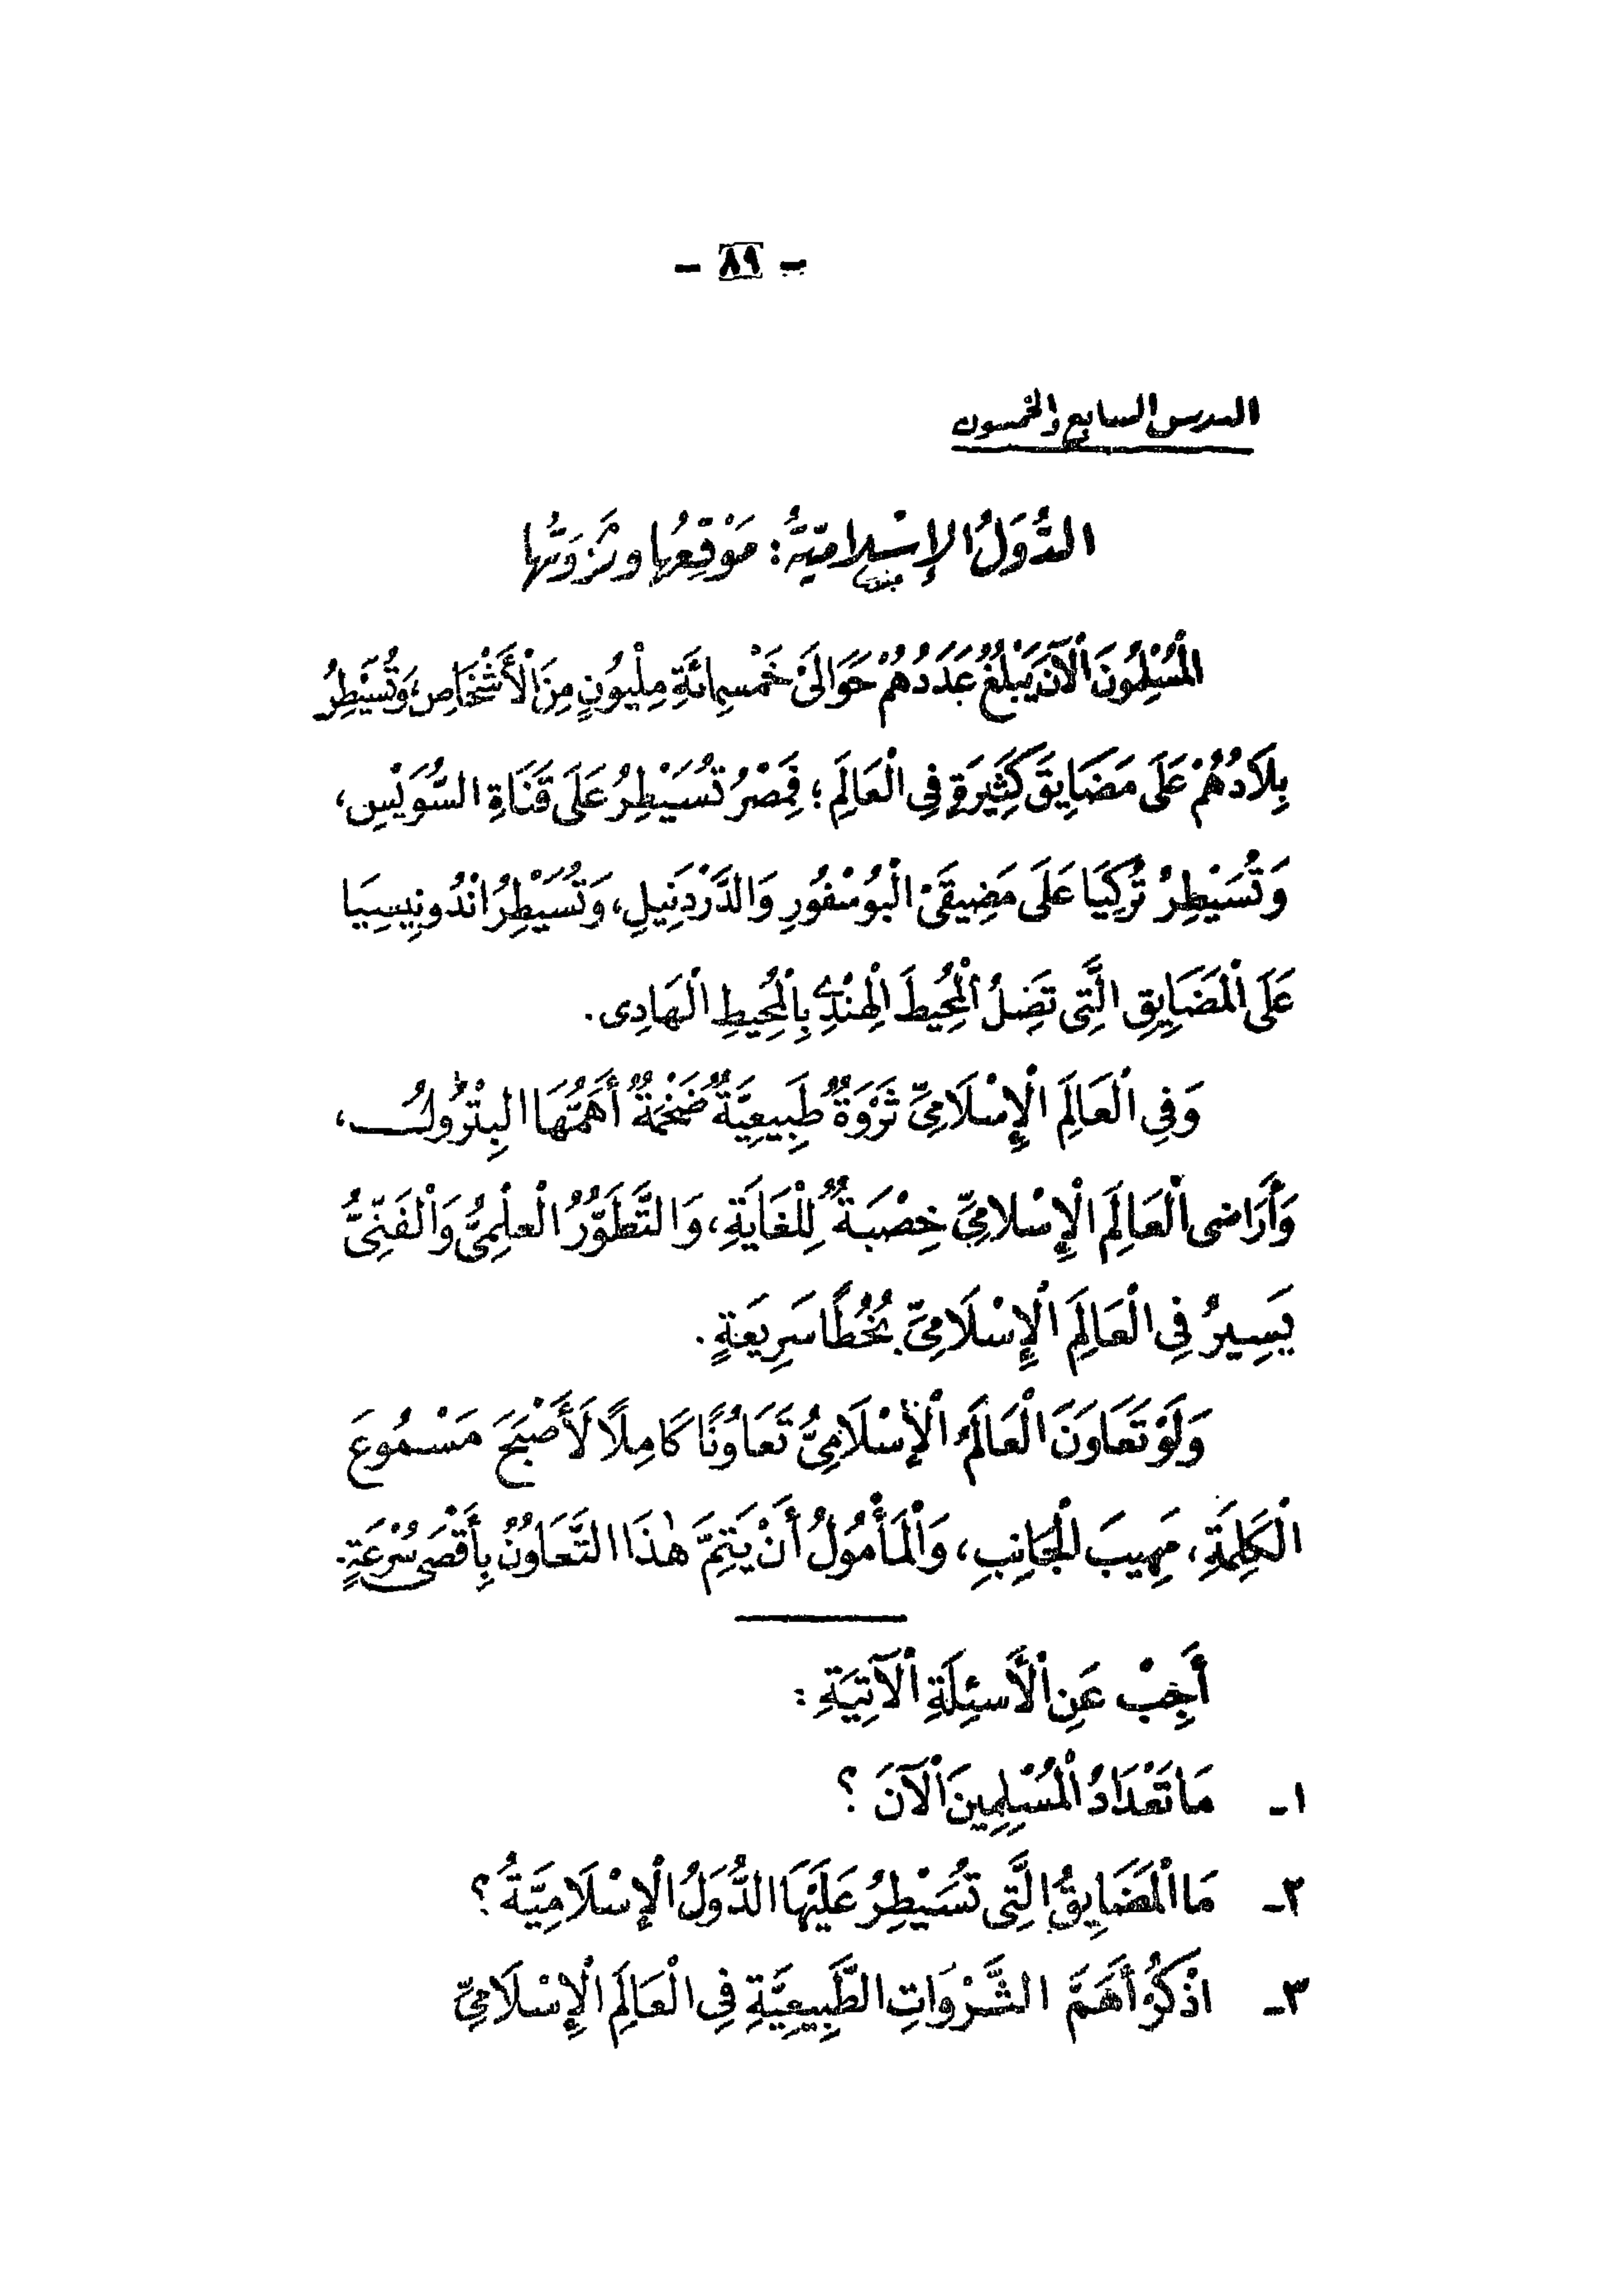 - ٨٩ -
الدرس السابع والخمسون
الدُّوَلُ الإِسْلاميّةُ: مَوْقِعُها وثَرْوَتُها
اَلْمُسْلِمُونَ الْآنَ يَبْلُغُ عَدَدُهُمْ حَوَالَىْ خَمْسِمِائَةِ مِلْيُونٍ مِنَ الْأَشْخَاصِ، وَتُسَيْطِرُ
بِلَادُهُمْ عَلَى مَضَايِقَ كَثِيرَةٍ فِى الْعَالَمِ؛ فَمِصْرُ تُسَيْطِرُ عَلَى قَنَاةِ السُّوَيْسِ،
وَتُسَيْطِرُ تُرْكِيَا عَلَى مَضِيقَىْ الْبُوسْفُورِ وَالدَّرْدَنِيلِ، وَتُسَيْطِرُ انْدُونِيسِيَا
عَلَى الْمَضَايِقِ الَّتِى تَصِلُ الْمُحِيطَ الْهِنْدِىَّ بِالْمُحِيطِ الْهَادِى.
وَفِى الْعَالَمِ الْإِسْلَامِىِّ ثَرْوَةٌ طَبِيعِيَّةٌ ضَخْمَةٌ أَهَمُّهَا الْبِتْرُولُ،
وَأَرَاضِى الْعَالَمِ الْإِسْلامِىِّ خِصْبَةٌ لِلْغَايَةِ، وَالتَّطَوُّرُ الْعِلْمِىُّ وَالْفَنِّىُّ
يَسِيرُ فِى الْعَالَمِ الْإِسْلَامِىِّ بِخُطًا سَرِيعَةٍ.
وَلَوْ تَعَاوَنَ الْعَالَمُ الْإِسْلَامِىُّ تَعَاوُنًا كَامِلًا لَأَصْبَحَ مَسْمُوعَ
الْكَلِمَةِ، مَهِيبَ الْجَانِبِ، وَالْمَأْمُولُ أَنْ يَتِمَّ هٰذَا التَّعَاوُنُ بِأَقْصَى سُرْعَةٍ.
أَجِبْ عَنِ الْأَسئِلَةِ الْآتِيَةِ :
١ـ مَا تَعْدَادُ الْمُسْلِمِينَ الْآنَ ؟
٢ـ مَا الْمَضَايِقُ الَّتِى تُسَيْطِرُ عَلَيْهَا الدُّوَلُ الْإِسْلَامِيَّةُ ؟
٣ـ اذْكُرْ أَهَمَّ الثَّرْوَاتِ الطَّبِيعِيَّةِ فِى الْعَالَمِ الْإِسْلَامِىِّ